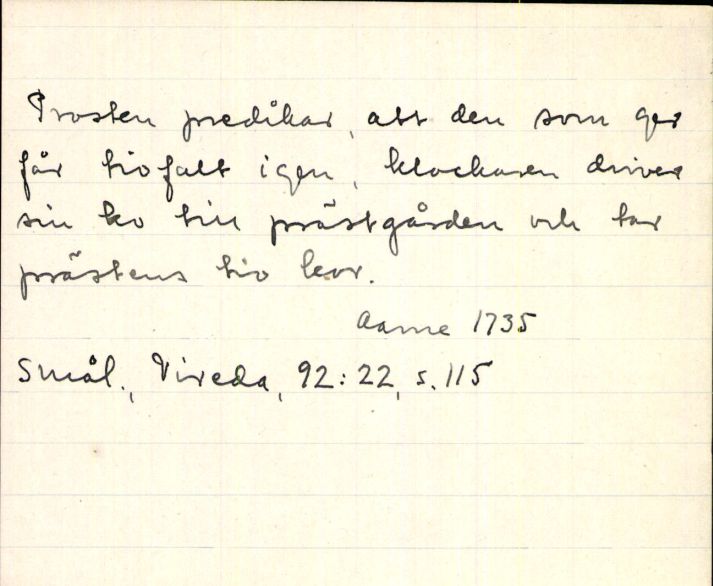 Prosten predikar, att den som ger
får tiofalt igen, klockaren driver
sin ko till prästgården och tar
prästens tio kor.
Aarne 1735
Smål., Vireda, 92:22, s. 115